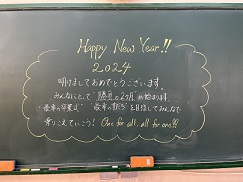 Happy New Year!!
2024
明けましておめでとうございます。
みんなにとって"勝負の2ヶ月"が始まります。
"最幸の卒業式" "最幸の旅立ち"を目指してみんなで
乗りこえていこう! One for all, all for one!!